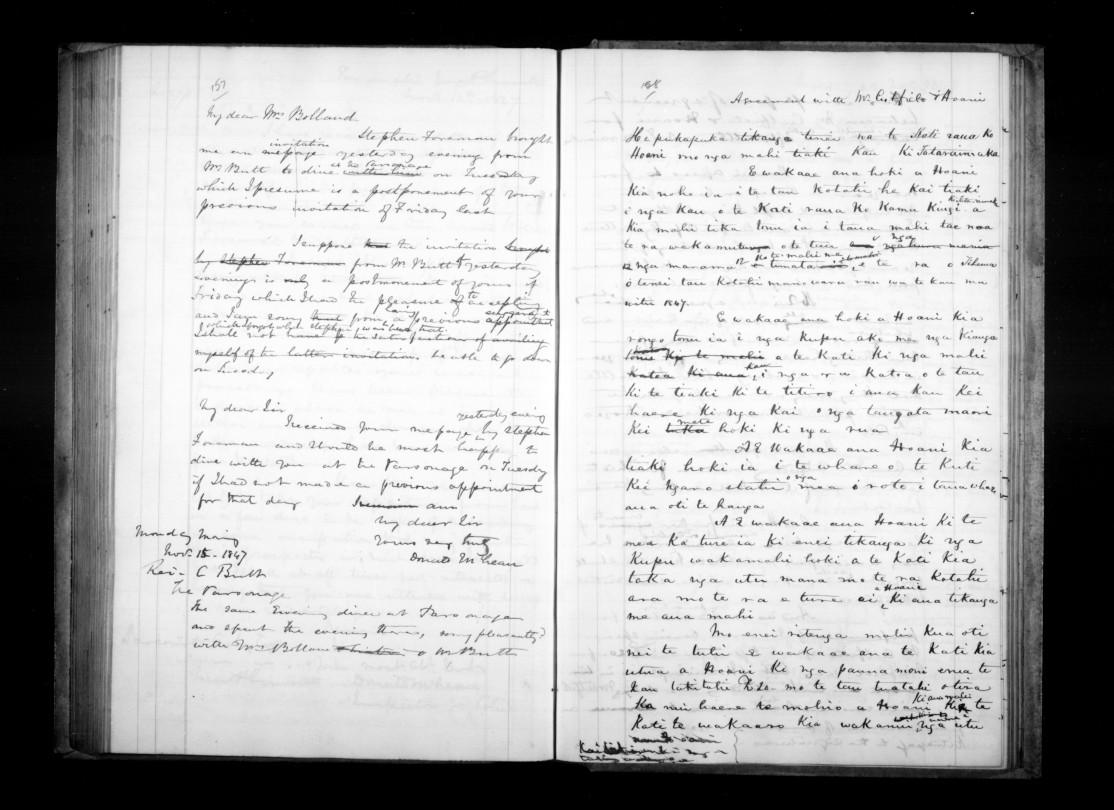 157
My dear Mrs Bolland
Stephen Foreman brought
me an message invitation yesterday evening from
Mr Butt to dine with him at the Parsonage on Tuesday
which I presume is a postponement of your
previous invitation of Friday last
I suppose the invitation
by Stephen Foreman from Mr Butt yesterday
evening is a postponement of yours of
Friday which I had the pleasure of accepting
and I am sorry from a previous
I shall not have the satisfaction of availing
myself of the latter invitation. be able to go down
on Tuesday
My dear Sir
I received your message yesterday evening by Stephen
Foreman and would be most happy to
dine with you at the Parsonage on Tuesday
if I had not made a previous appointment
for that day I remain am
My dear Sir
Yours very truly
Donald McLean
Monday Morng
Nov. 15 - 1847
Rev. C Butt
The Parsonage
The same Evening dined at Parsonage
and spent the evening there, very pleasantly
with Mrs Bolland & Mr Butt
158
Agreement with Mr Cutfield & Hoani
He pukapuka tikanga tenei na te Kati raua ko
Hoani mo nga mahi tiaki Kau Ki Tataraimaka
E wakaae ana hoki a Hoani
Kia noho ia i te tau Kotahi he Kai tiaki
i nga Kau o te Kati raua Ko Kamu Kingi a
Kia mahi tika tonu ia i tana mahi tae noa
te ra wakamutunga o te tau
nga marama te ra o
o tenei tau Kotahi mano waru rau wa te kau ma
witu 1847.
E wakaae ana hoki a Hoani Kia
rongo tonu ia i nga Kupu ako me nga Kianga
a te Kati Ki nga mahi
Katoa Ki ana, i nga ra Katoa o te tau
Ki te tiaki Ki te titiro i ana Kau Kei
haere Ki nga Kai o nga tangata maori
Kei mate hoki Ki nga rua
A E Wakaae ana Hoani Kia
tiaki hoki ia i te whare o te Kati
Kei Ngaro etahi o nga mea i roto i tona whare
ana oti te hanga
A E wakaae ana Hoani Ki te
mea Ka ture ia Ki enei tikanga Ki nga
Kupu wakamahi hoki a te Kati Kia
taka nga utu mana mo te ra Kotahi
ara mo te ra e ture ai a Hoani Ki ana tikanga
me ana mahi
Mo enei ritenga mahi Kua oti
nei te tuhi E wakaae ana te Kati Kia
utua a Hoani Ki nga pauna moni erua te
Kau takitahi £20. mo te tau tuatahi otira
Ka nui haere te mohio a Hoani Ki ana mahi Kei te
Kati te wakaaro Kia wakanui i nga utu